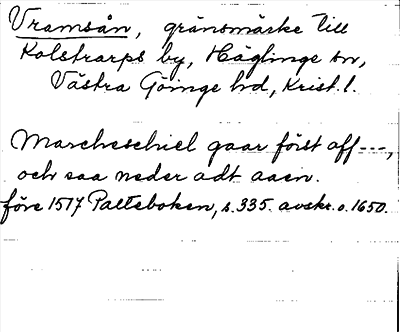 Vramsån, gränsmärke till
Kolstrarps by, Häglinge sn,
Västra Göinge hd, Krist. l.
Marcheschiel gaar först aff ---,
och saa neder adt aaen.
före 1517 Palteboken, s. 335. avskr. o. 1650.